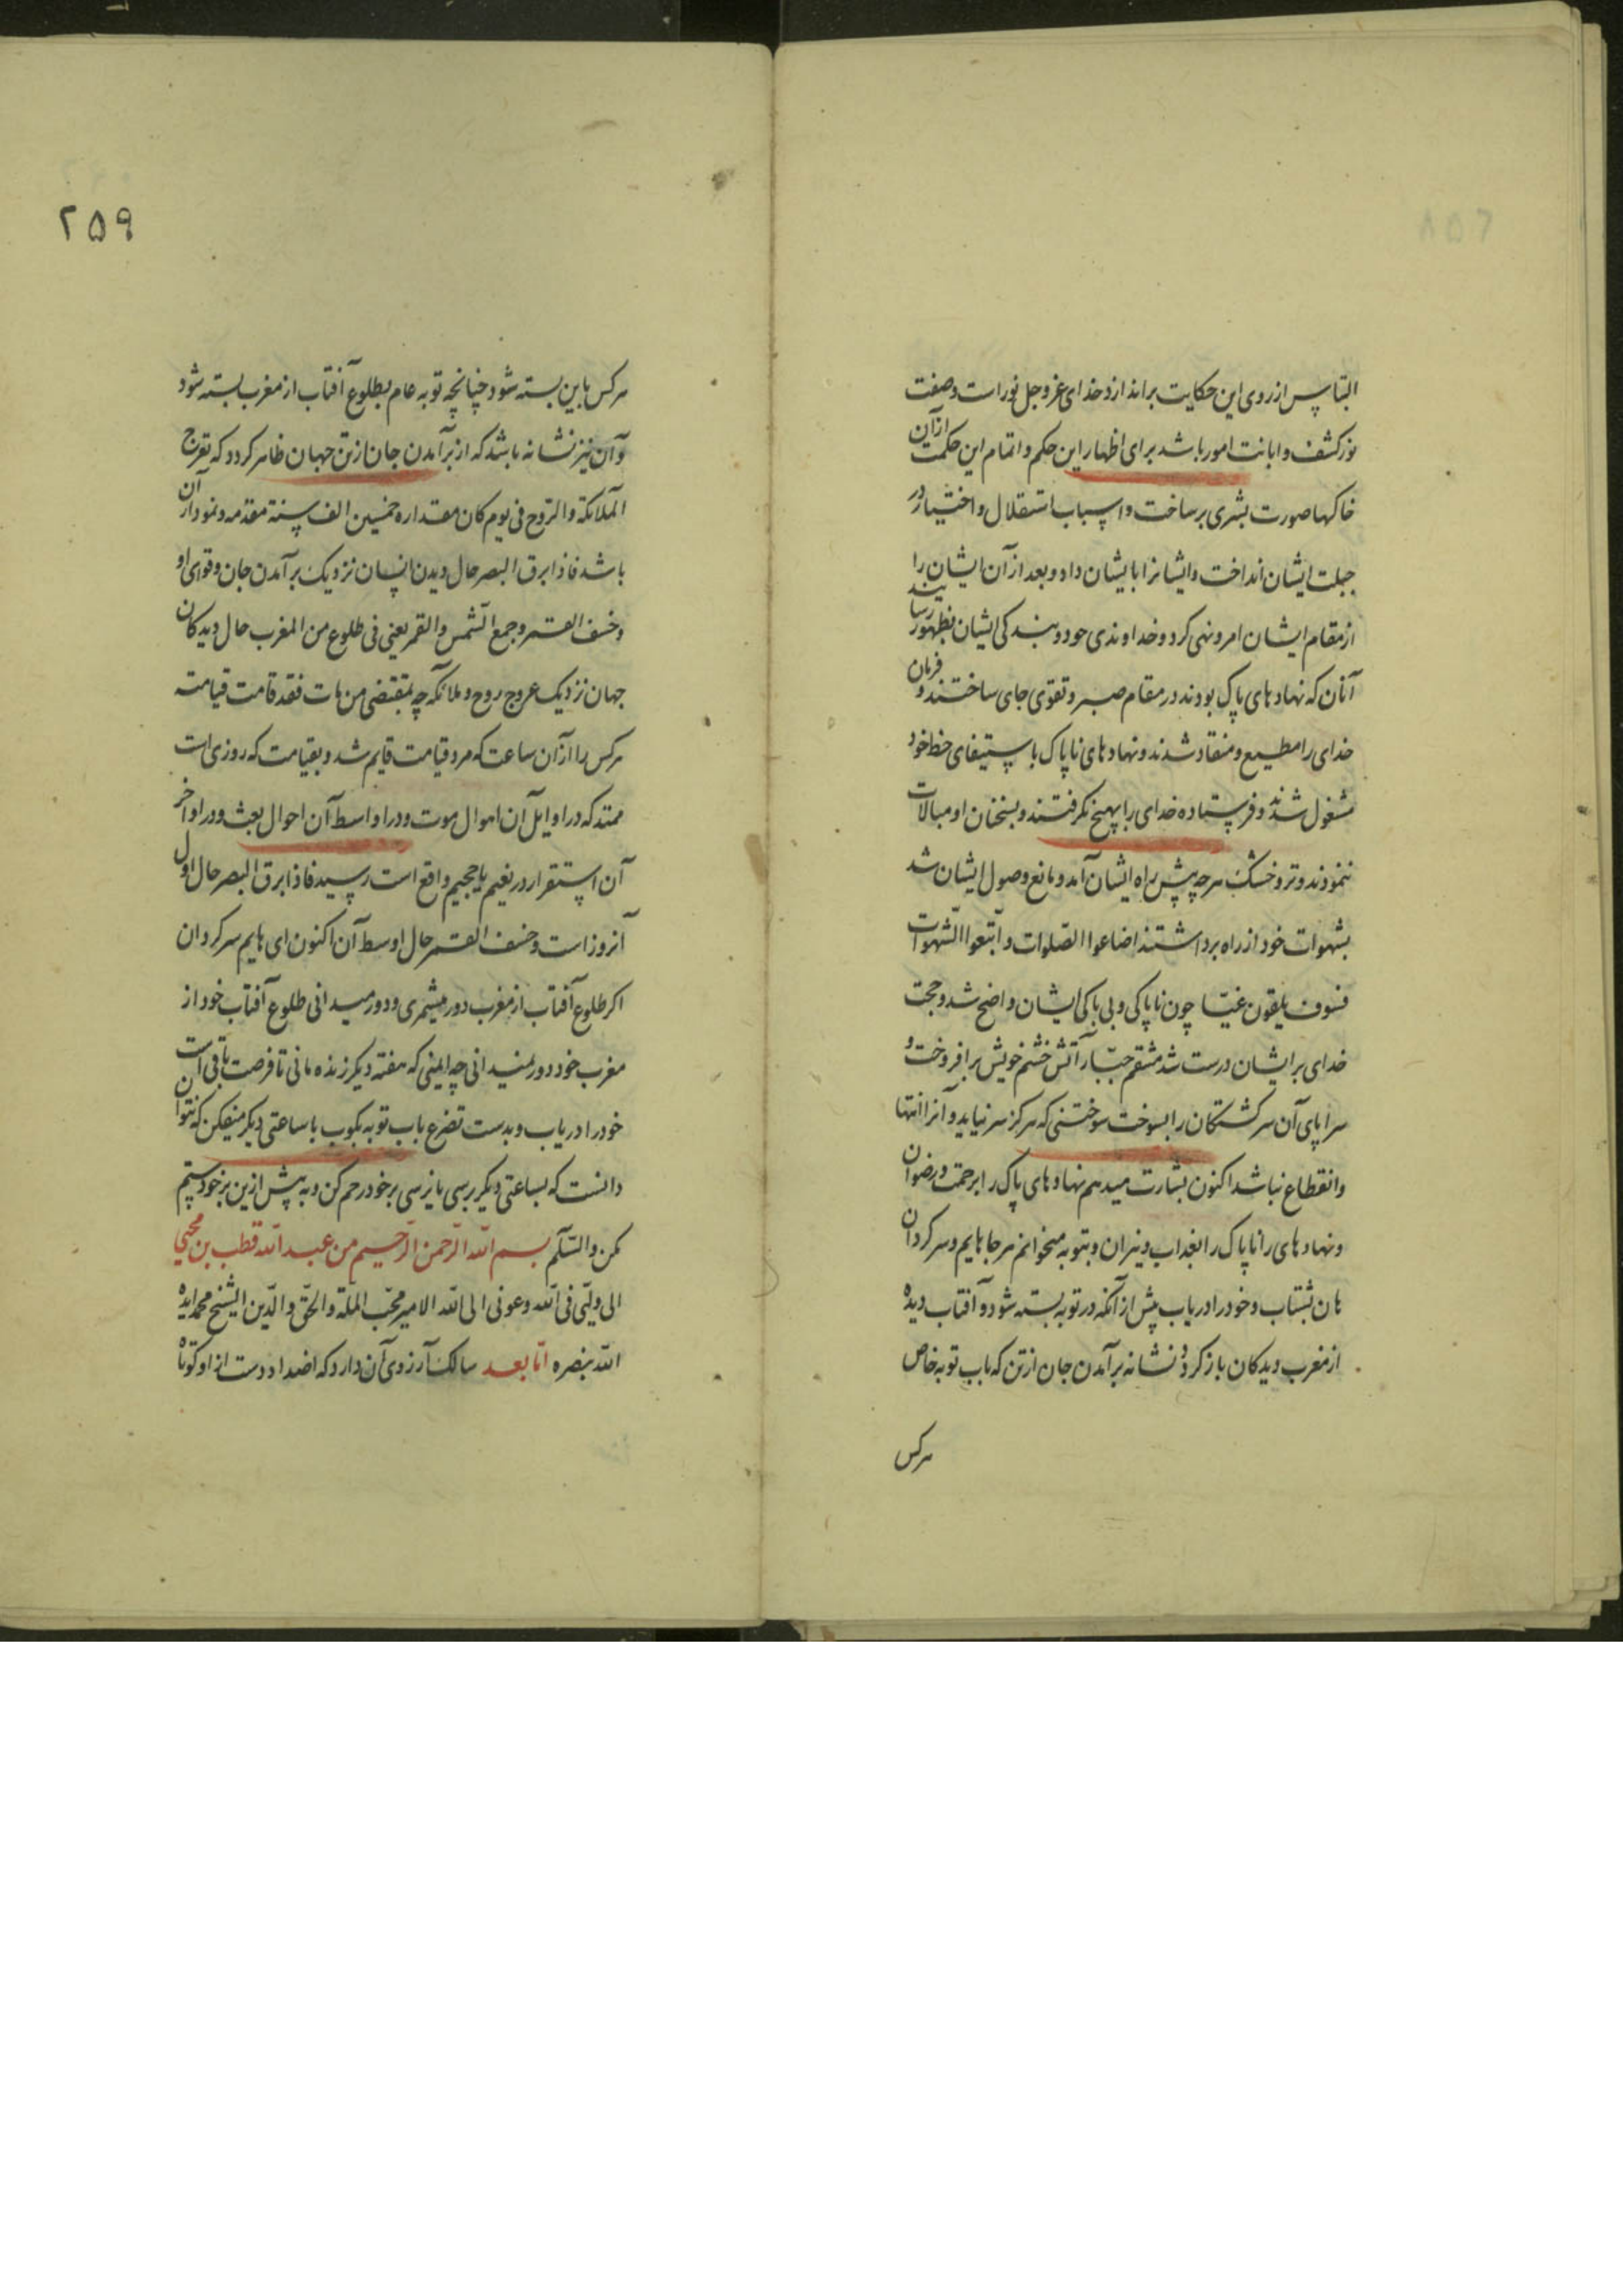 التباس از روی این حکایت براندازد و خدای عز و جل نور است و صفت
نور کشف و ابانت امور باشد برای اظهار این حکم و اتمام این حکمت از آن
خاکها صورت بشری بر ساخت و اسباب استقلال و اختیار در
جبلت ایشان انداخت و ایشانرا بایشان داد و بعد از آن ایشان را
از مقام ایشان امر و نهی کرد و خداوندی خود و بندگی ایشان بظهور رسانید
آنان که نهادهای پاک بودند در مقام صبر و تقوی جای ساختند و فرمان
خدای را مطیع و منقاد شدند و نهادهای ناپاک باستیفای حظ خود
مشغول شدند و فرستاده خدای را بهیچ نگرفتند و بسخنان او مبالات
ننمودند و تر و خشک هرچه پیش راه ایشان آمد و مانع وصول ایشان شد
بشهوات خود از راه برداشتند اضاعوا الصّلوات و اتّبعوا الشّهوات
فسوف یلقون غیّا چون ناپاکی و بی باکی ایشان واضح شد و حجت
خدای بر ایشان درست شد منتقم جبّار آتش خشم خویش برافروخت و
سراپای آن سرکشتکان را بسوخت سوختنی که هرکز سر نیاید و آنرا انتها
و انقطاع نباشد اکنون بشارت میدهم نهادهای پاک را برحمت و رضوان
و نهادهای را ناپاک را بعذاب و نیران و بتوبه میخوانم هر جا هایم و سرکردان
هان بشتاب و خود را دریاب پیش از آنکه در توبه بسته شود و آفتاب دیده
از مغرب دیدکان باز کردد و نشانه برآمدن جان از تن که باب توبه خاص
هرکس
۲۵۹
هرکس باین بسته شود چنانچه توبه عام بطلوع آفتاب از مغرب بسته شود
و آن نیز نشانه باشد که از برآمدن جان از تن جهان ظاهر کردد که تعرج
الملائکة و الرّوح فی یوم کان مقداره خمسین الف سنة مقدمه و نمودار آن
باشد فاذا برق البصر حال دیدن انسان نزدیک برآمدن جان و قوای او
و خسف القمر و جمع الشّمس و القمر یعنی فی طلوع من المغرب حال دیدکان
جهان نزدیک عروج روح و ملائکه چه بمقتضی من مات فقد قامت قیامته
هرکس را از آن ساعت که مرد قیامت قایم شد و بقیامت که روزی است
ممتد که در اوایل آن اهوال موت و در اواسط آن احوال بعث و در اواخر
آن استقرار در نعیم یا جحیم واقع است رسید فاذا برق البصر حال اول
آنروز است و خسف القمر حال اوسط آن اکنون ای هایم سرکردان
اکر طلوع آفتاب از مغرب دور میشمری و دور میدانی طلوع آفتاب خود از
مغرب خود دور نمیدانی چه ایمنی که هفته دیکر زنده مانی تا فرصت باقی است
خود را دریاب و بدست تضرع باب توبه بکوب با ساعتی دیکر میفکن که نتوان
دانست که بساعتی دیکر برسی یا نرسی بر خود رحم کن و به پیش ازین بر خود ستم
مکن والسّلم بسم الله الرّحمن الرّحیم من عبد الله قطب بن محیی
الی ولیّی فی الله و عونی الی الله الامیر محبّ الملّة و الحقّ و الدّین الشیخ محمد ایده
الله بنصره امّا بعد سالک آرزوی آن دارد که اضداد دست از او کوتاه